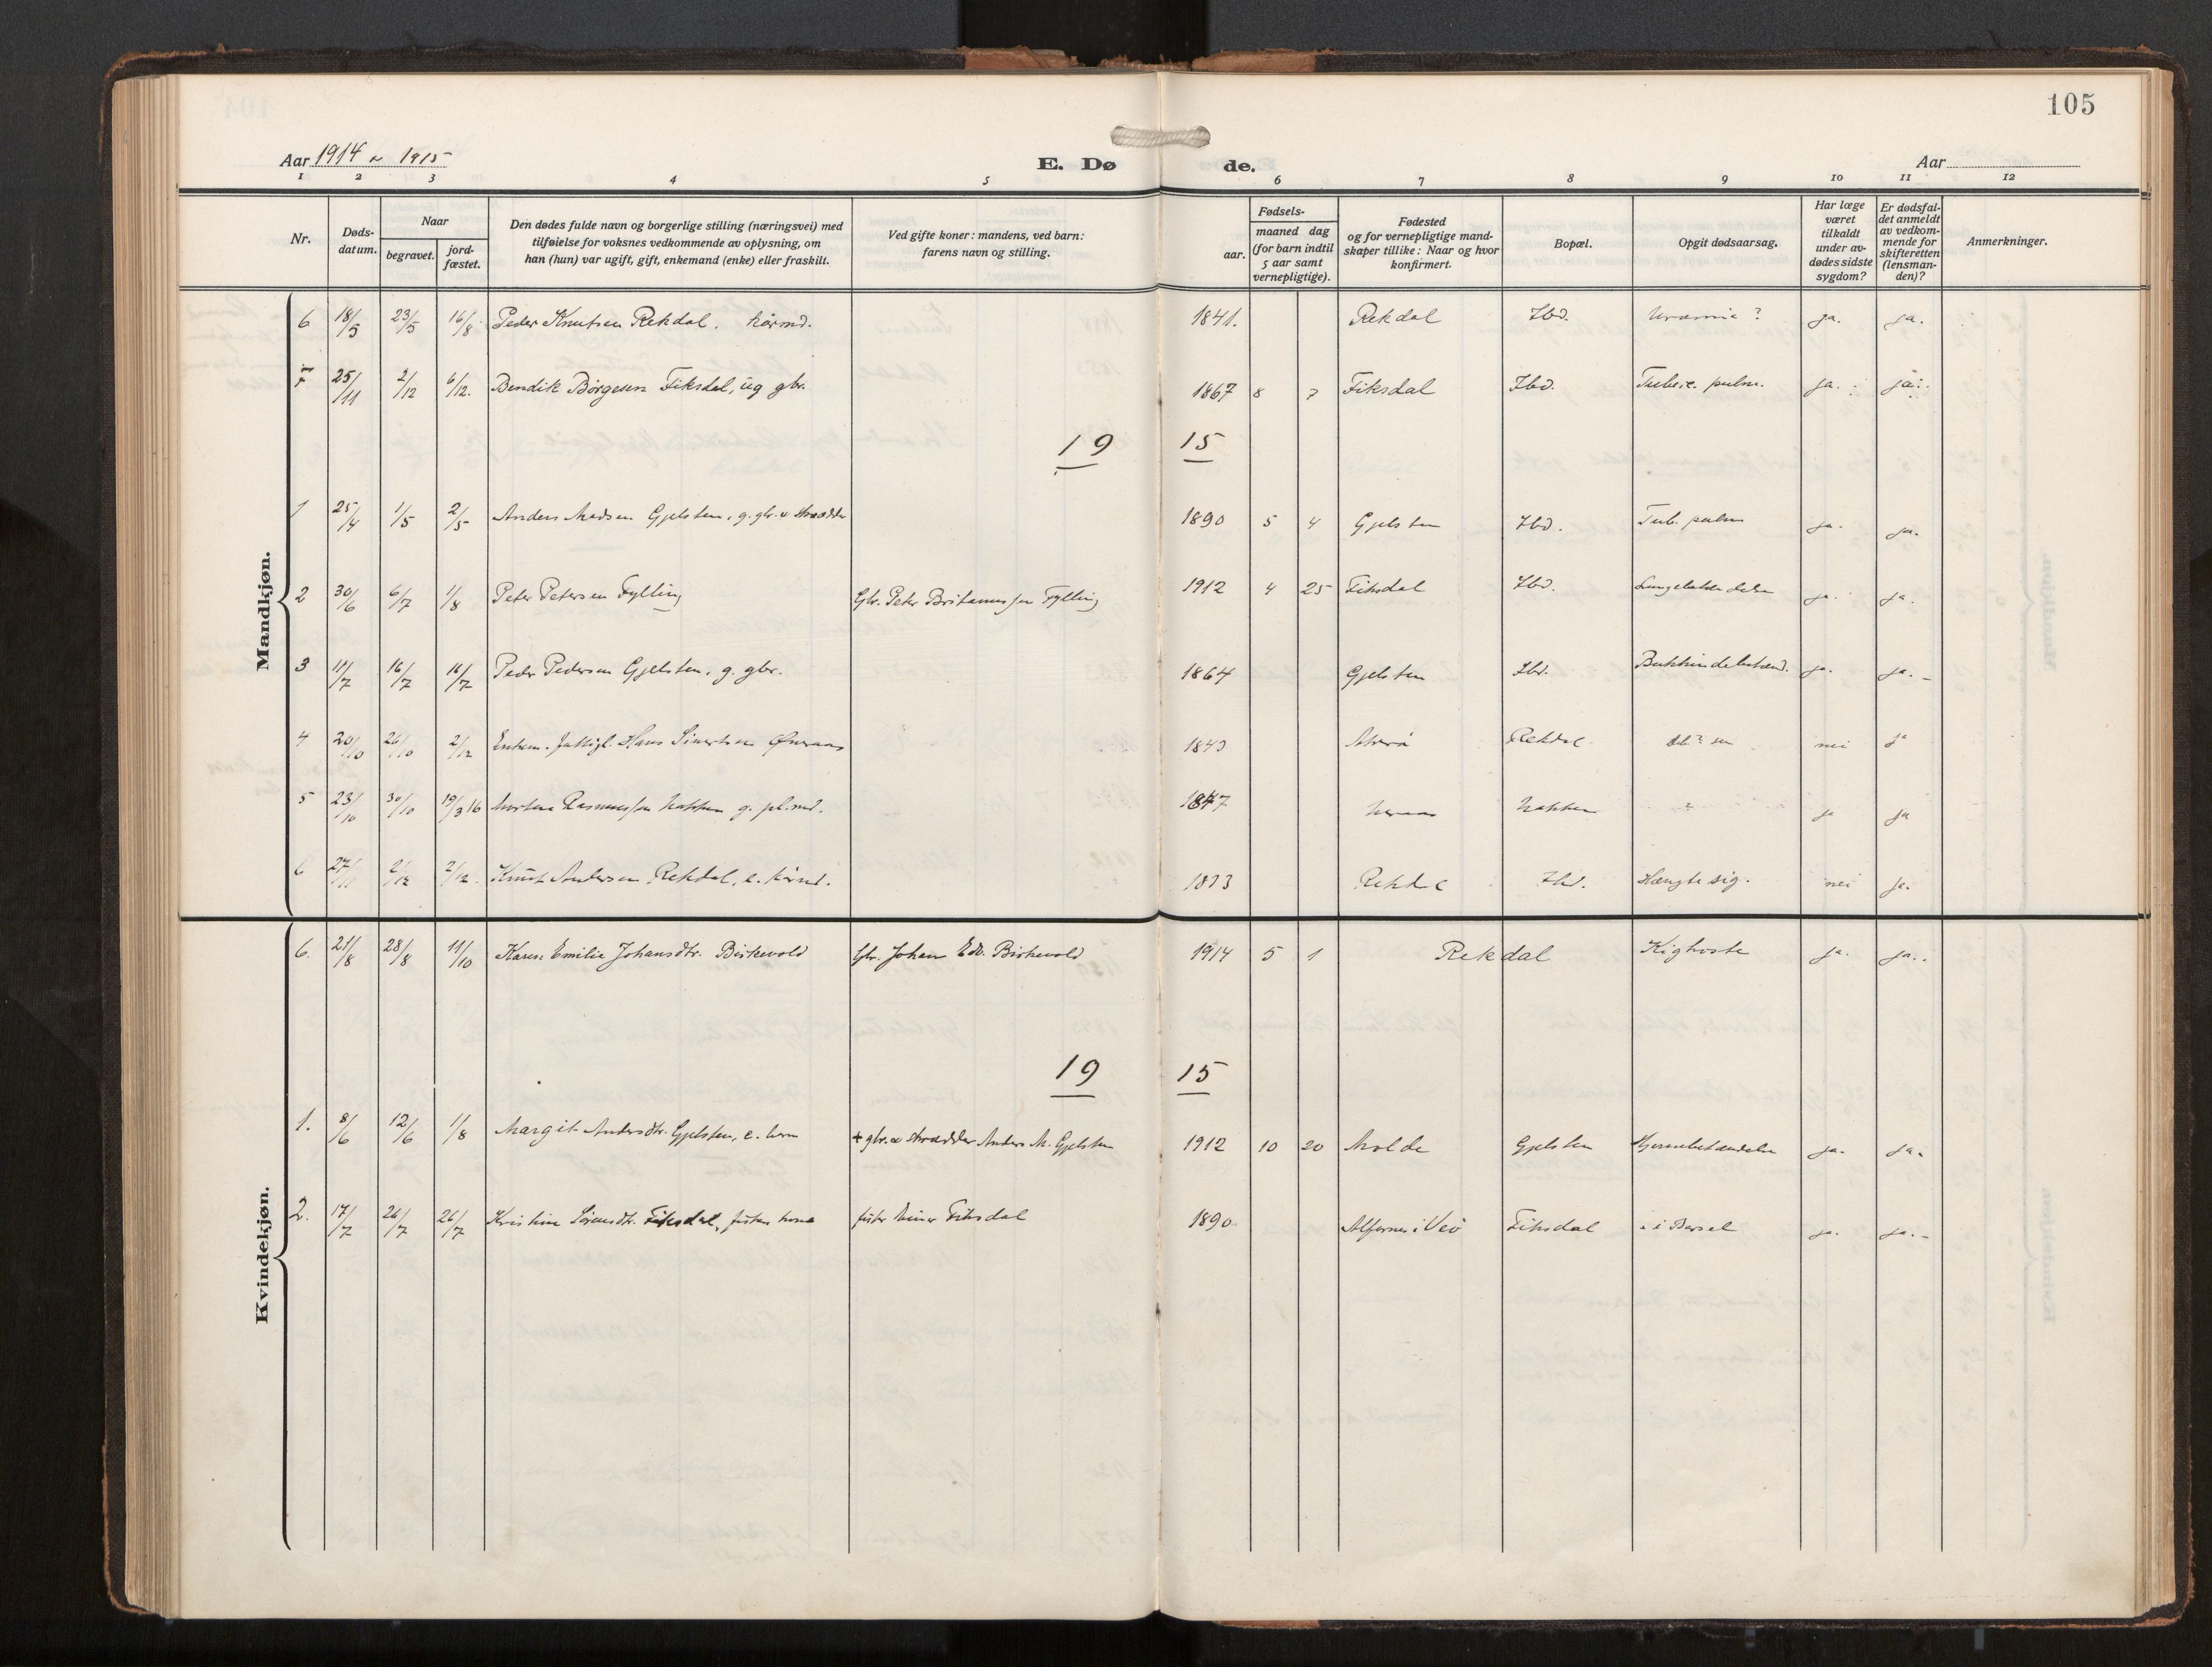 105
Aar 1914 1915
E. Døde.
Aar
1 2 3 4 5 6 7 8 9 10 11 12
Nr.
Døds-
datum.
Naar
begravet.
jord-
fæstet.
Den dødes fulde navn og borgerlige stilling (næringsvei) med
tilføielse for voksnes vedkommende av oplysning, om
han (hun) var ugift, gift, enkemand (enke) eller fraskilt.
Ved gifte koner: mandens, ved barn:
farens navn og stilling.
Fødsels-
aar.
maaned dag
(for barn indtil
5 aar samt
vernepligtige).
Fødested
og for vernepligtige mand-
skaper tillike: Naar og hvor
konfirmert.
Bopæl.
Opgit dødsaarsag.
Har læge
været
tilkaldt
under av-
dødes sidste
sygdom?
Er dødsfal-
det anmeldt
av vedkom-
mende for
skifteretten
(lensman-
den)?
Anmerkninger.
Mandkjøn.
6 18/5 23/5 16/8 Peder Knutsen Rekdal, kårmd. 1841. Rekdal Ibd. Uræmie? ja. ja.
7 25/11 2/12 6/12. Bendik Børgesen Fiksdal, ug gbr. 1867 8 7 Fiksdal Ibd. Tuberc. pulm. ja. ja.
19 15
1 25/4 1/5 2/5 Anders Madsen Gjelsten, g. gbr. & skrædder 1890 5 4 Gjelsten Ibd. Tub. pulm ja. ja.
2 30/6 6/7 1/8 Peter Petersen Fylling Gbr. Peter Fylling 1912 4 25 Fiksdal Ibd. ja. ja.
3 11/7 16/7 16/7 Peder Pedersen Gjelsten, g. gbr. 1864 Gjelsten Ibd. ja. ja.
4 20/10 26/10 2/12 Enkem. Hans 1843 Rekdal nei ja
5 23/10 30/10 19/3 16 Rasmussen g. 1847 ja ja
6 27/11 2/12 2/12. Knut Andersen Rekdal, e. kårmd. Rekdal Ibd. Hængte sig. nei ja.
Kvindekjøn.
6. 21/8 28/8 11/10 Karen Emilie Johansdtr. Birkevold Gbr. Johan Edv. Birkevold 1914 5 1 Rekdal Kighoste ja. ja.
19 15
1. 8/6 12/6 1/8 Margit Andersdtr. Gjelsten, e. barn + gbr. & skrædder Anders M. Gjelsten 1912 10 20 Molde Gjelsten Hjernebetændelse ja. ja.
2. 17/7 26/7 26/7 Kristine Fiksdal, fiskers kone fisker Fiksdal 1890 i Veø Fiksdal i Barsel ja. ja.